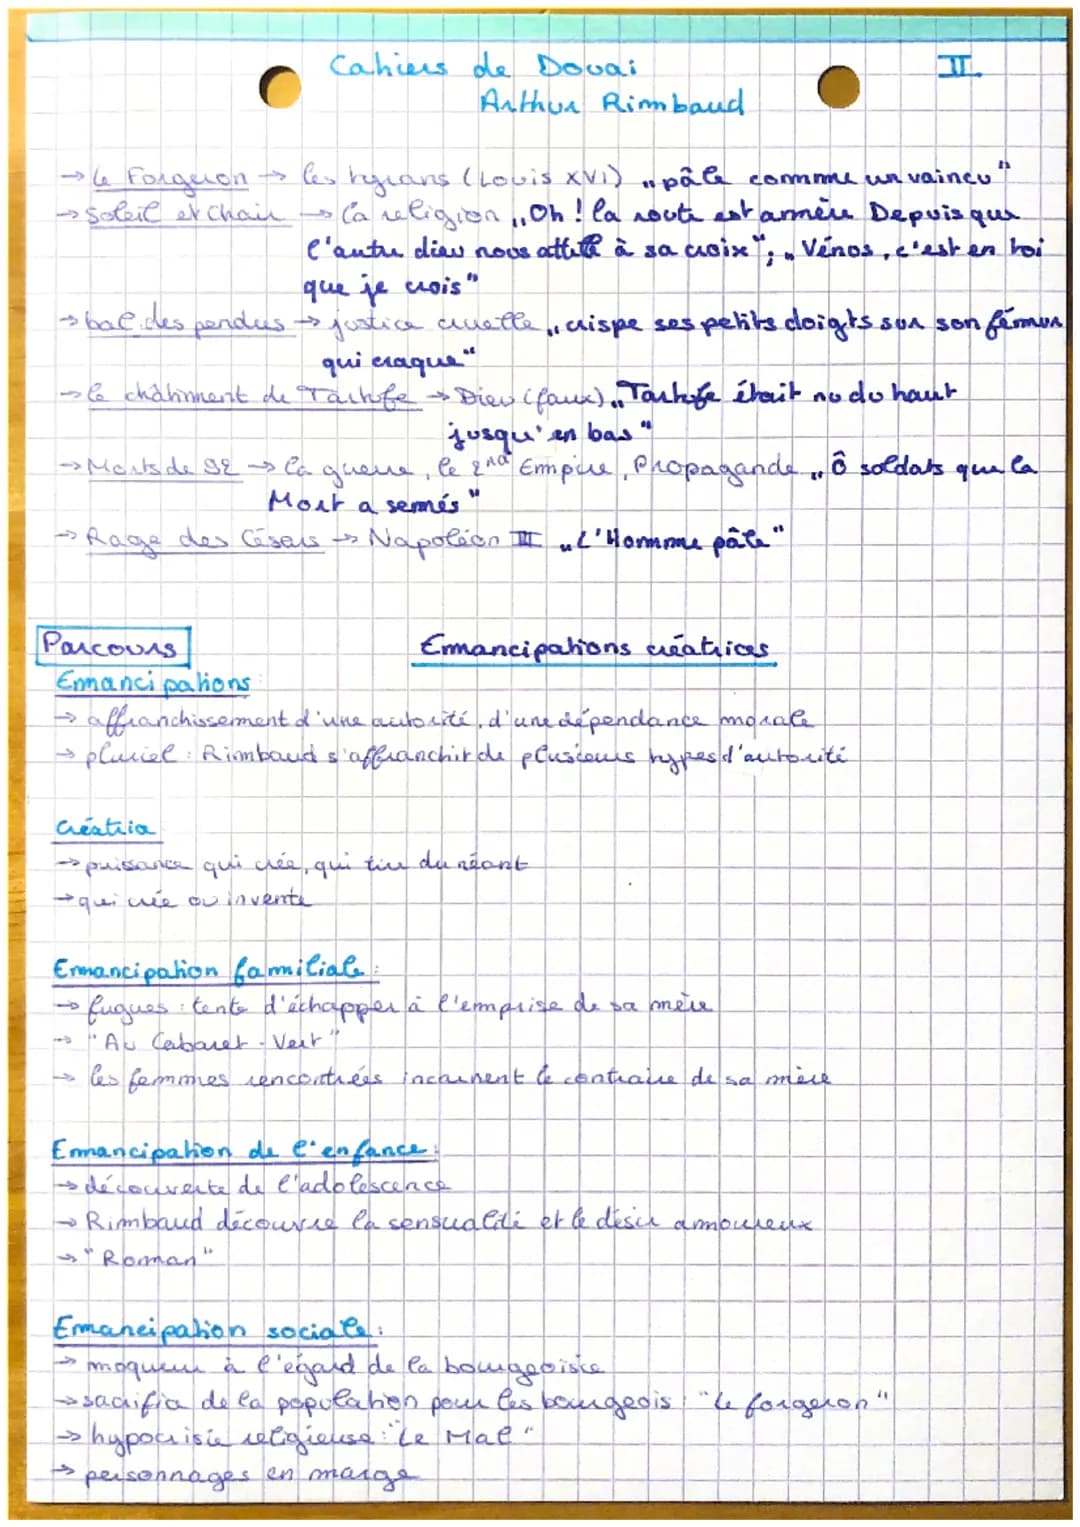 Cahiers de Douai
II.
Arthur Rimbaud
→ Le Forgeron → les tyrans (Louis XVI) „pâle comme un vaincu"
→ Soleil et Chair → la religion „Oh ! la route est amère Depuis que
l'autre dieu nous attelle à sa croix"; „Vénus, c'est en toi
que je crois"
→ bal des pendus → justice cruelle „crispe ses petits doigts sur son fémur
qui craque"
→ le châtiment de Tartufe → Dieu (faux) „Tartufe était nu du haut
jusqu'en bas"
→ Morts de 92 → la guerre, le 2nd Empire, Propagande „Ô soldats que la
Mort a semés"
→ Rage des Césars → Napoléon III „L'Homme pâle"
Parcours
Emancipations créatrices
Emancipations :
→ affranchissement d'une autorité, d'une dépendance morale
→ pluriel : Rimbaud s'affranchit de plusieurs types d'autorité
Créatrice
→ puissance qui crée, qui tire du néant
→ qui crée ou invente
Emancipation familiale :
→ fugues : tente d'échapper à l'emprise de sa mère
→ "Au Cabaret-Vert"
→ les femmes rencontrées incarnent le contraire de sa mère
Emancipation de l'enfance :
→ découverte de l'adolescence
→ Rimbaud découvre la sensualité et le désir amoureux
→ "Roman"
Emancipation sociale :
→ moqueur à l'égard de la bourgeoisie
→ sacrifice de la population pour les bourgeois : "Le forgeron"
→ hypocrisie religieuse : "Le Mal"
→ personnages en marge